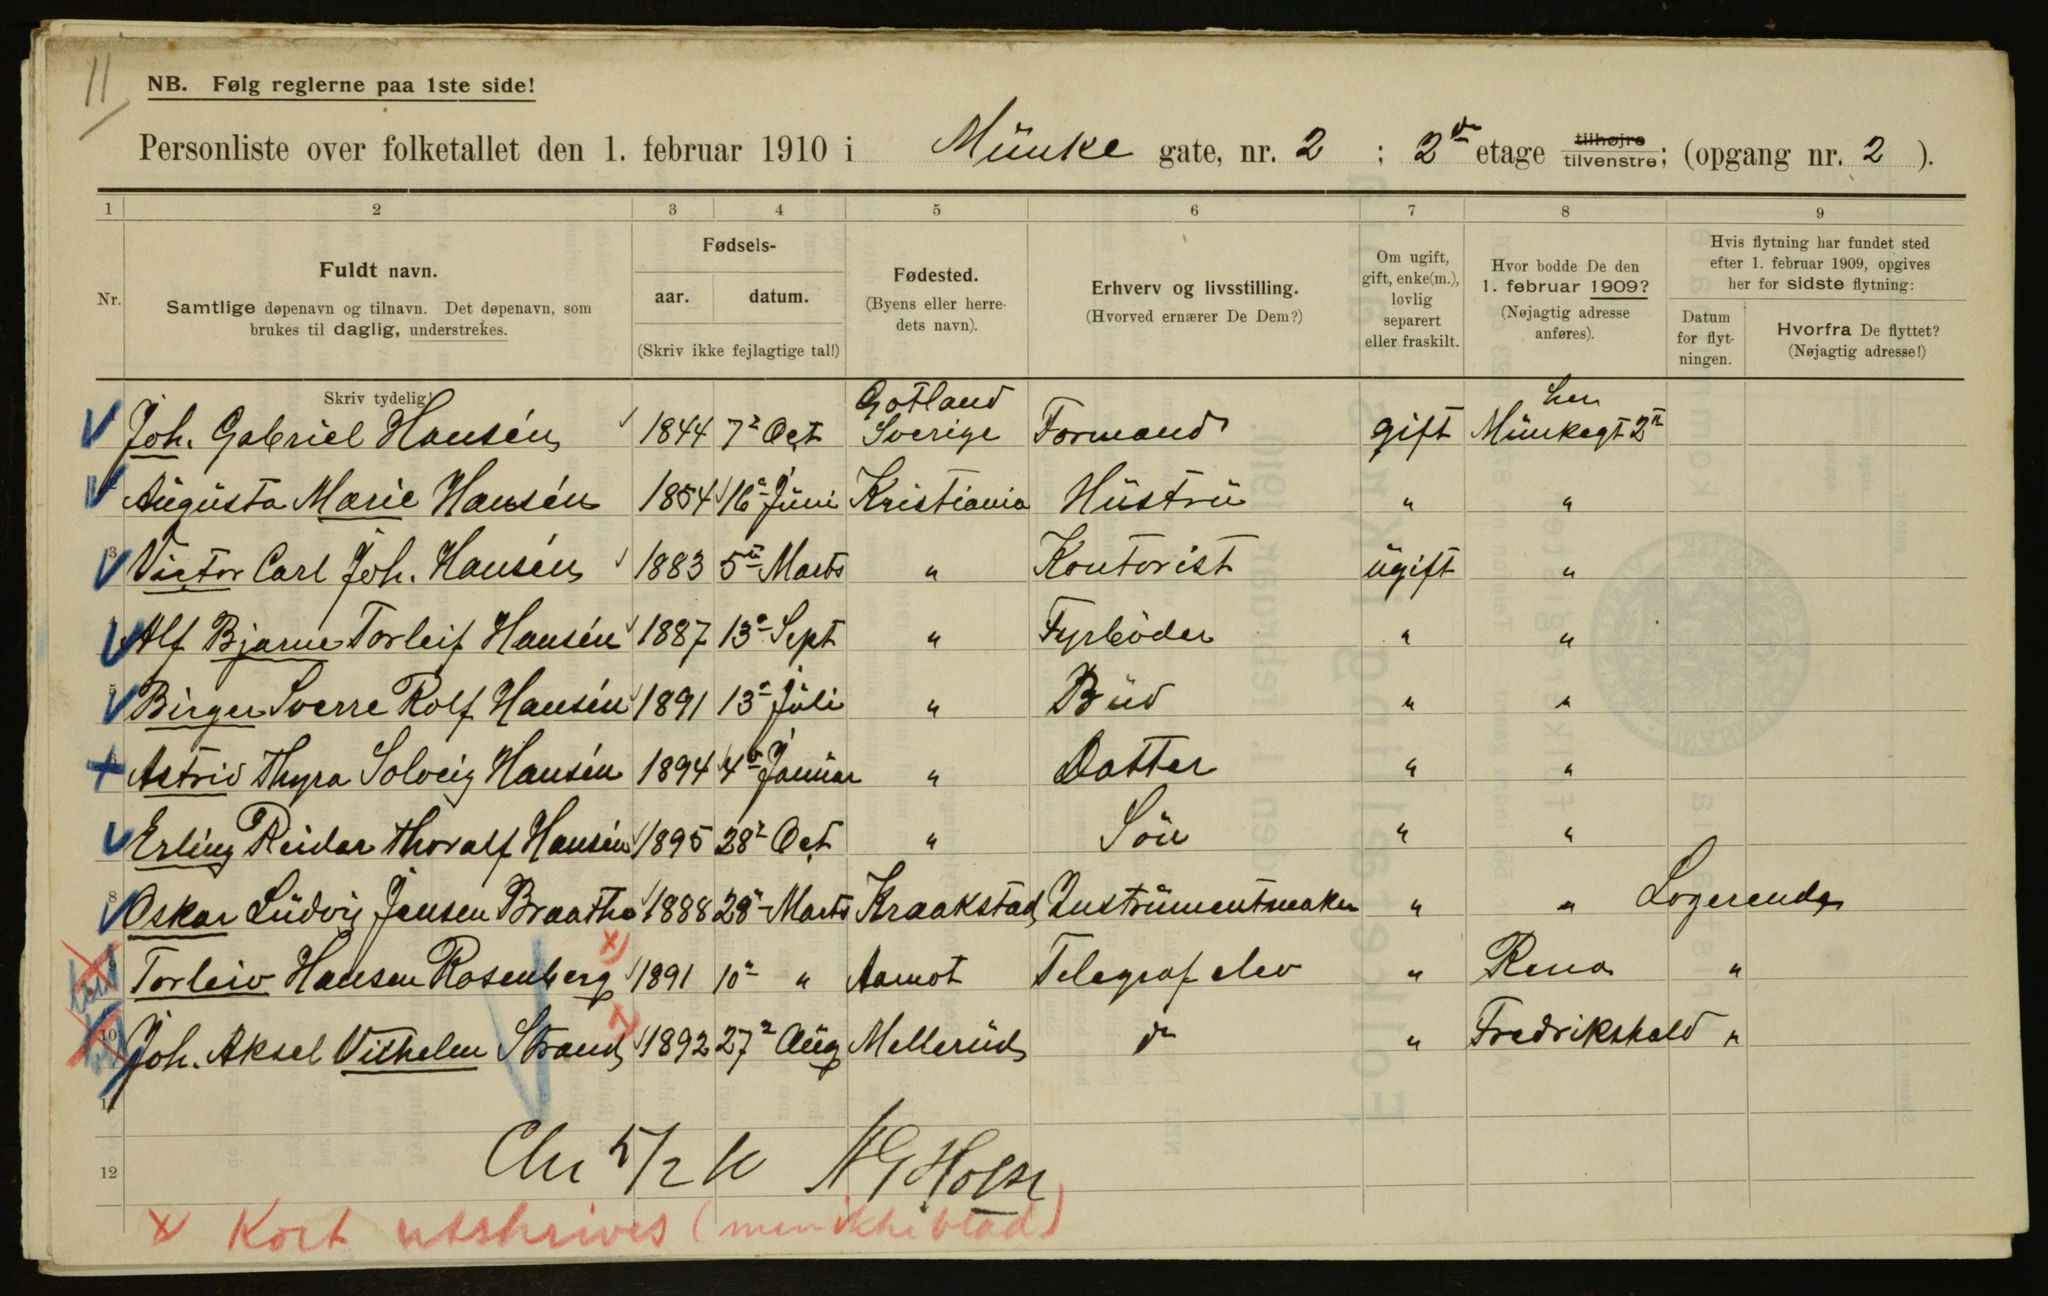 11
NB. Følg reglerne paa 1ste side!
Personliste over folketallet den 1. februar 1910 i Münke gate, nr. 2 ; 2den etage tilhøjre tilvenstre; (opgang nr. 2 ).
1 2 3 4 5 6 7 8 9
Nr.
Fuldt navn.
Samtlige døpenavn og tilnavn. Det døpenavn, som
brukes til daglig, understrekes.
Fødsels-
aar. datum.
(Skriv ikke fejlagtige tal!)
Fødested.
(Byens eller herre-
dets navn).
Erhverv og livsstilling.
(Hvorved ernærer De Dem?)
Om ugift,
gift, enke(m.),
lovlig
separert
eller fraskilt.
Hvor bodde De den
1. februar 1909?
(Nøjagtig adresse
anføres).
Hvis flytning har fundet sted
efter 1. februar 1909, opgives
her for sidste flytning:
Datum
for flyt-
ningen.
Hvorfra De flyttet?
(Nøjagtig adresse!)
Skriv tydelig!
Joh. Gabriel Hansén 1844 7 Oct Gotland Sverige Formand gift her Münkegt 2
Augusta Marie Hansén 1854 16 Juni Kristiania Hüstrü " "
3 Victor Carl Joh. Hansén 1883 5 Marts " Kontorist ügift "
Alf Bjarne Torleif Hansén 1887 13 Sept " Fyrböder " "
5 Birger Sverre Rolf Hansén 1891 13 Jüli " Büd " "
6 Astrid Thyra Solveig Hansén 1894 4 Janüar " Datter " "
Erling Reidar Thoralf Hansén 1895 28 Oct " Sön " "
8 Oskar Lüdvig Jensen Braathe 1888 28 Marts Kraakstad Instrümentmaker " " Logerende
9 Torleiv Hansen Rosenberg x) 1891 10 " Aamot Telegraf elev " Rena "
10 Joh. Aksel Vilhelm Strand x) 1892 27 Aüg Mellerüd do " Fredrikshald "
11
12 Chr 5/2 10 Holm
x Kort utskrives (men ikke blad)